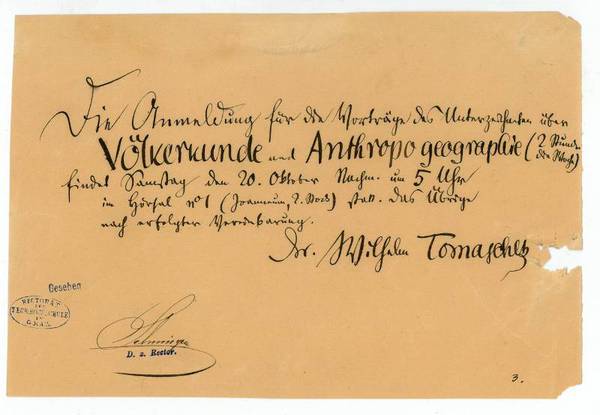 Die Anmeldung für die Vorträge des Unterzeichneten über
Völkerkunde und Anthropogeographie (2 Stunden
die Woche)
findet Samstag den 20. Oktober Nachm. um 5 Uhr
im Hörsal nº 1 (Joanneum, 2. Stock) statt. das Übrige
nach erfolgter Vereinbarung.
Dr. Wilhelm Tomaschek
Gesehen
RECTORAT
DER
TECHN. HOCHSCHULE
IN
GRAZ
D. z. Rector.
3.